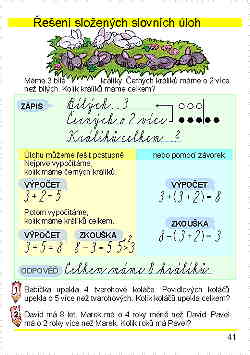 Řešení složených slovních úloh
Máme 3 bílé králíky. Černých králíků máme o 2 více
než bílých. Kolik králíků máme celkem?
ZÁPIS
Bílých...3
Černých o 2 více
Králíků celkem...?
Úlohu můžeme řešit postupně
nebo pomocí závorek.
Nejprve vypočítáme,
kolik máme černých králíků.
VÝPOČET
3+2=5
VÝPOČET
3+(3+2)=8
Potom vypočítáme,
kolik máme králíků celkem.
VÝPOČET
3+5=8
ZKOUŠKA
8-3=5
ZKOUŠKA
8-(3+2)=3
ODPOVĚĎ
Celkem máme 8 králíků.
1 Babička upekla 4 tvarohové koláče. Povidlových koláčů
upekla o 5 více než tvarohových. Kolik koláčů upekla celkem?
2 David má 8 let. Marek má o 4 roky méně než David. Pavel
má o 2 roky více než Marek. Kolik roků má Pavel?
41